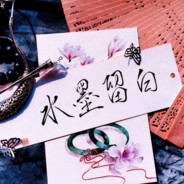 水墨留白